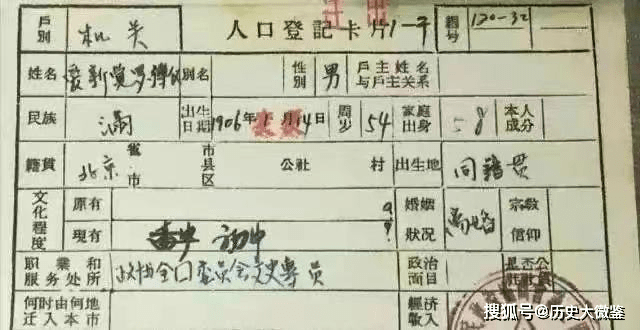 迁出
戶別 机关 人口登記卡片 1-干 編号 120-32
姓名 爱新覚罗 别名 性别 男 戶主姓名与戶主关系
民族 满 出生日期 1906年 月14日 周岁 54 家庭出身 本人成分
籍貫 北京 省市 市县区 公社 村 出生地 同籍贯
文化程度 原有 婚姻狀况 宗教信仰
現有 初中
职業和服务处所 政协全口委員会文史專員 政治面目 是否公社社員
何时由何地迁入本市 經济收入
搜狐号@历史大微鉴